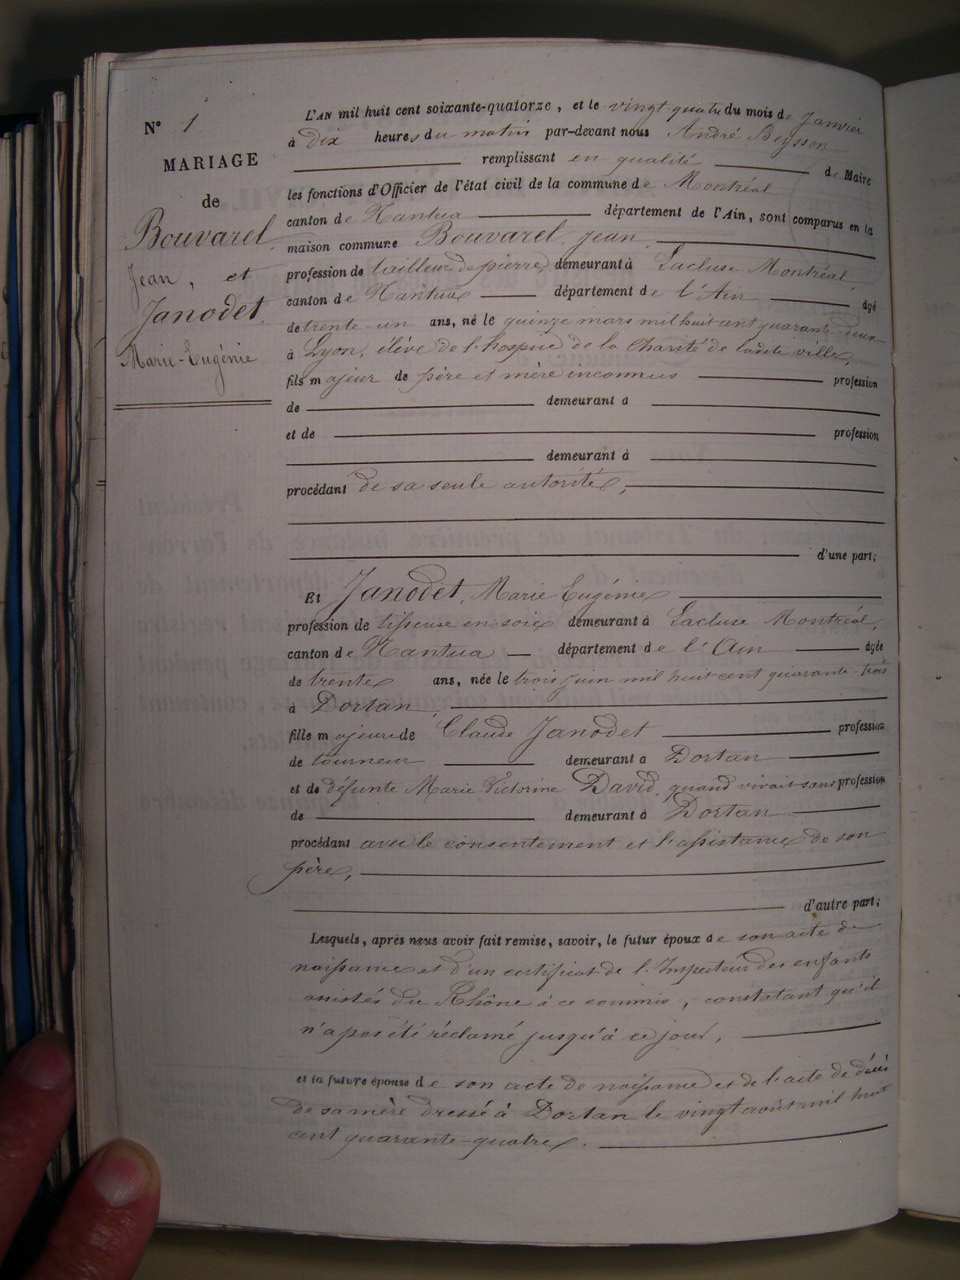 N° 1
MARIAGE
de
Bouvarel
Jean, et
Janodet
Marie-Eugénie
L'AN mil huit cent soixante-quatorze, et le vingt-quatre du mois de Janvier
à Dix heures du matin par-devant nous André Beysson
remplissant en qualité de Maire
les fonctions d'Officier de l'état civil de la commune de Montréal
canton de Nantua département de l'Ain, sont comparus en la
maison commune Bouvarel, Jean
profession de tailleur de pierre, demeurant à Lacluse Montréal,
canton de Nantua département de l'Ain âgé
de trente-un ans, né le quinze mars mil huit cent quarante-deux
à Lyon, élève de l'hospice de la Charité de ladite ville,
fils majeur de père et mère inconnus profession
de demeurant à
et de profession
demeurant à
procédant de sa seule autorité,
d'une part;
Et Janodet, Marie Eugénie
profession de tisseuse en soie demeurant à Lacluse Montréal,
canton de Nantua département de l'Ain âgée
de trente ans, née le trois juin mil huit cent quarante-trois
à Dortan
fille majeure de Claude Janodet profession
de tourneur demeurant à Dortan
et de défunte Marie Victorine David, quand vivait sans profession
de demeurant à Dortan
procédant avec le consentement et l'assistance de son
père,
d'autre part;
Lesquels, après nous avoir fait remise, savoir, le futur époux de son acte de
naissance et d'un certificat de l'Inspecteur des enfants
assistés du Rhône à ce commis, constatant qu'il
n'a pas été réclamé jusqu'à ce jour,
et la future épouse de son acte de naissance et de l'acte de décès
de sa mère dressé à Dortan le vingt août mil huit
cent quarante-quatre.